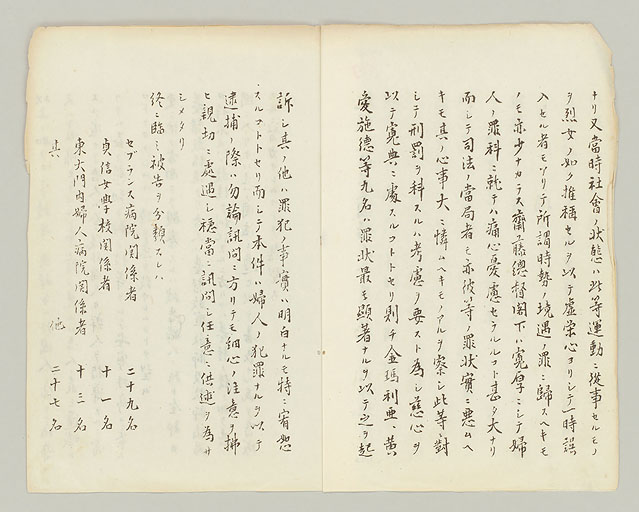 ナリ又當時社會ノ狀態ハ此等運動ニ從事セルモノ
ヲ烈女ノ如ク推稱セルヲ以テ虛栄心ヨリシテ一時誤
入セル者モアリテ所謂時勢ノ境遇ノ罪ニ歸スヘキモ
ノモ亦少ナカラス齋藤總督閣下ハ寬厚ニシテ婦
人ノ罪科ニ就テハ痛心憂慮セラルルコト甚タ大ナリ
而シテ司法ノ當局者モ亦彼等ノ罪狀實ニ悪ムヘ
キモ其ノ心事大ニ憐ムヘキモノアルヲ察シ此等ニ對
シテ刑罰ヲ科スルハ考慮ノ要スト為シ慈心ヲ
以テ寬典ニ處スルコトトセリ則チ金瑪利亜、黄
愛施德等九名ハ罪狀最モ顯著ナルヲ以テ之ヲ起
訴シ其ノ他ハ罪犯ノ事實ハ明白ナルモ特ニ宥恕
スルコトトセリ而シテ本件ハ婦人ノ犯罪ナルヲ以テ
逮捕ノ際ハ勿論訊問ニ方リテモ細心ノ注意ヲ拂
ヒ親切ニ處遇シ穩當ニ訊問シ任意ニ供述ヲ為サ
シメタリ
終ニ臨ミ被告ヲ分類スレハ
セブランス病院関係者 二十九名
貞信女學校関係者 十一名
東大門内婦人病院関係者 十三名
其他 二十七名